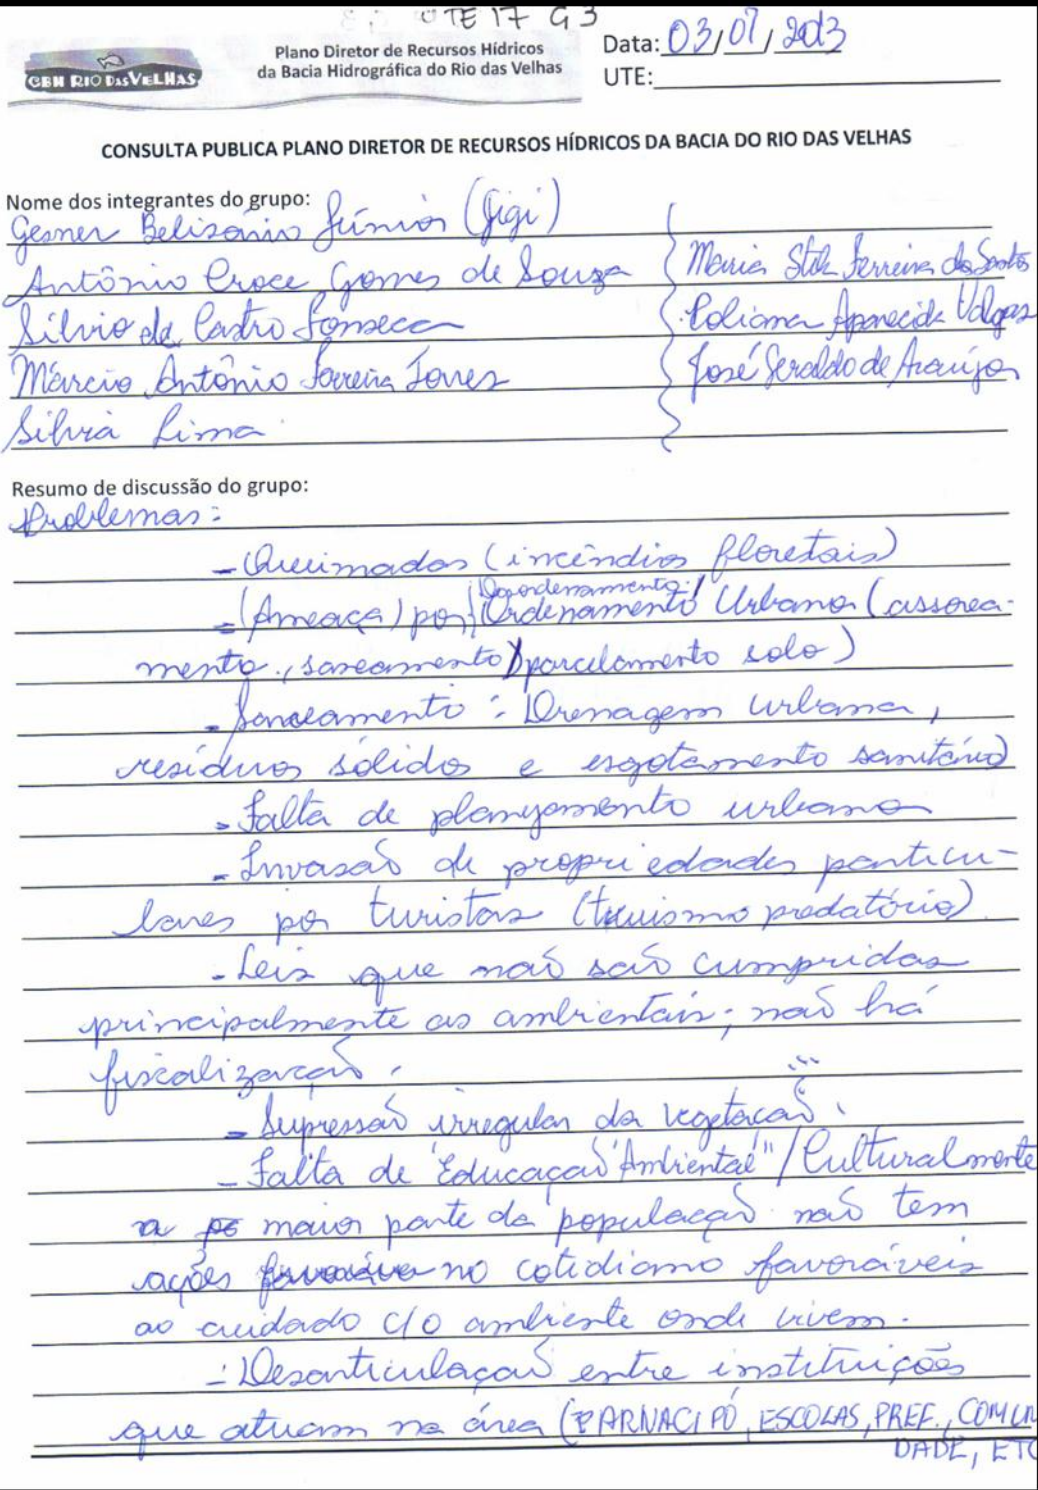 UTE 17 G3
CBH RIO DAS VELHAS
Plano Diretor de Recursos Hídricos
da Bacia Hidrográfica do Rio das Velhas
Data: 03/07/2013
UTE:
CONSULTA PUBLICA PLANO DIRETOR DE RECURSOS HÍDRICOS DA BACIA DO RIO DAS VELHAS
Nome dos integrantes do grupo:
Gesner Belisário Júnior (Gigi)
Antônio Croce Gomes de Souza
Silvio de Castro Fonseca
Márcio Antônio Ferreira Torres
Silvia Lima
Maria Ferreira dos Santos
Poliana Aparecida Valgas
José Geraldo de Araújo
Resumo de discussão do grupo:
Problemas:
- Queimadas (incêndios floretais)
- (Ameaça) por Desordenamento / Ordenamento Urbano (assorea-
mento, saneamento, parcelamento solo)
- Saneamento: Drenagem urbana,
resíduos sólidos e esgotamento sanitário
- Falta de planejamento urbano
- Invasão de propriedades particu-
lares por turistas (turismo predatório)
- Leis que não são cumpridas
principalmente as ambientais; não há
fiscalização.
- Supressão irregular da vegetação.
- Falta de "Educação Ambiental" / Culturalmente
a maior parte da população não tem
ações no cotidiano favoráveis
ao cuidado c/o ambiente onde vivem.
- Desarticulação entre instituições
que atuam na área (PARNACIPÓ, ESCOLAS, PREF., COMUNI
DADE, ETC